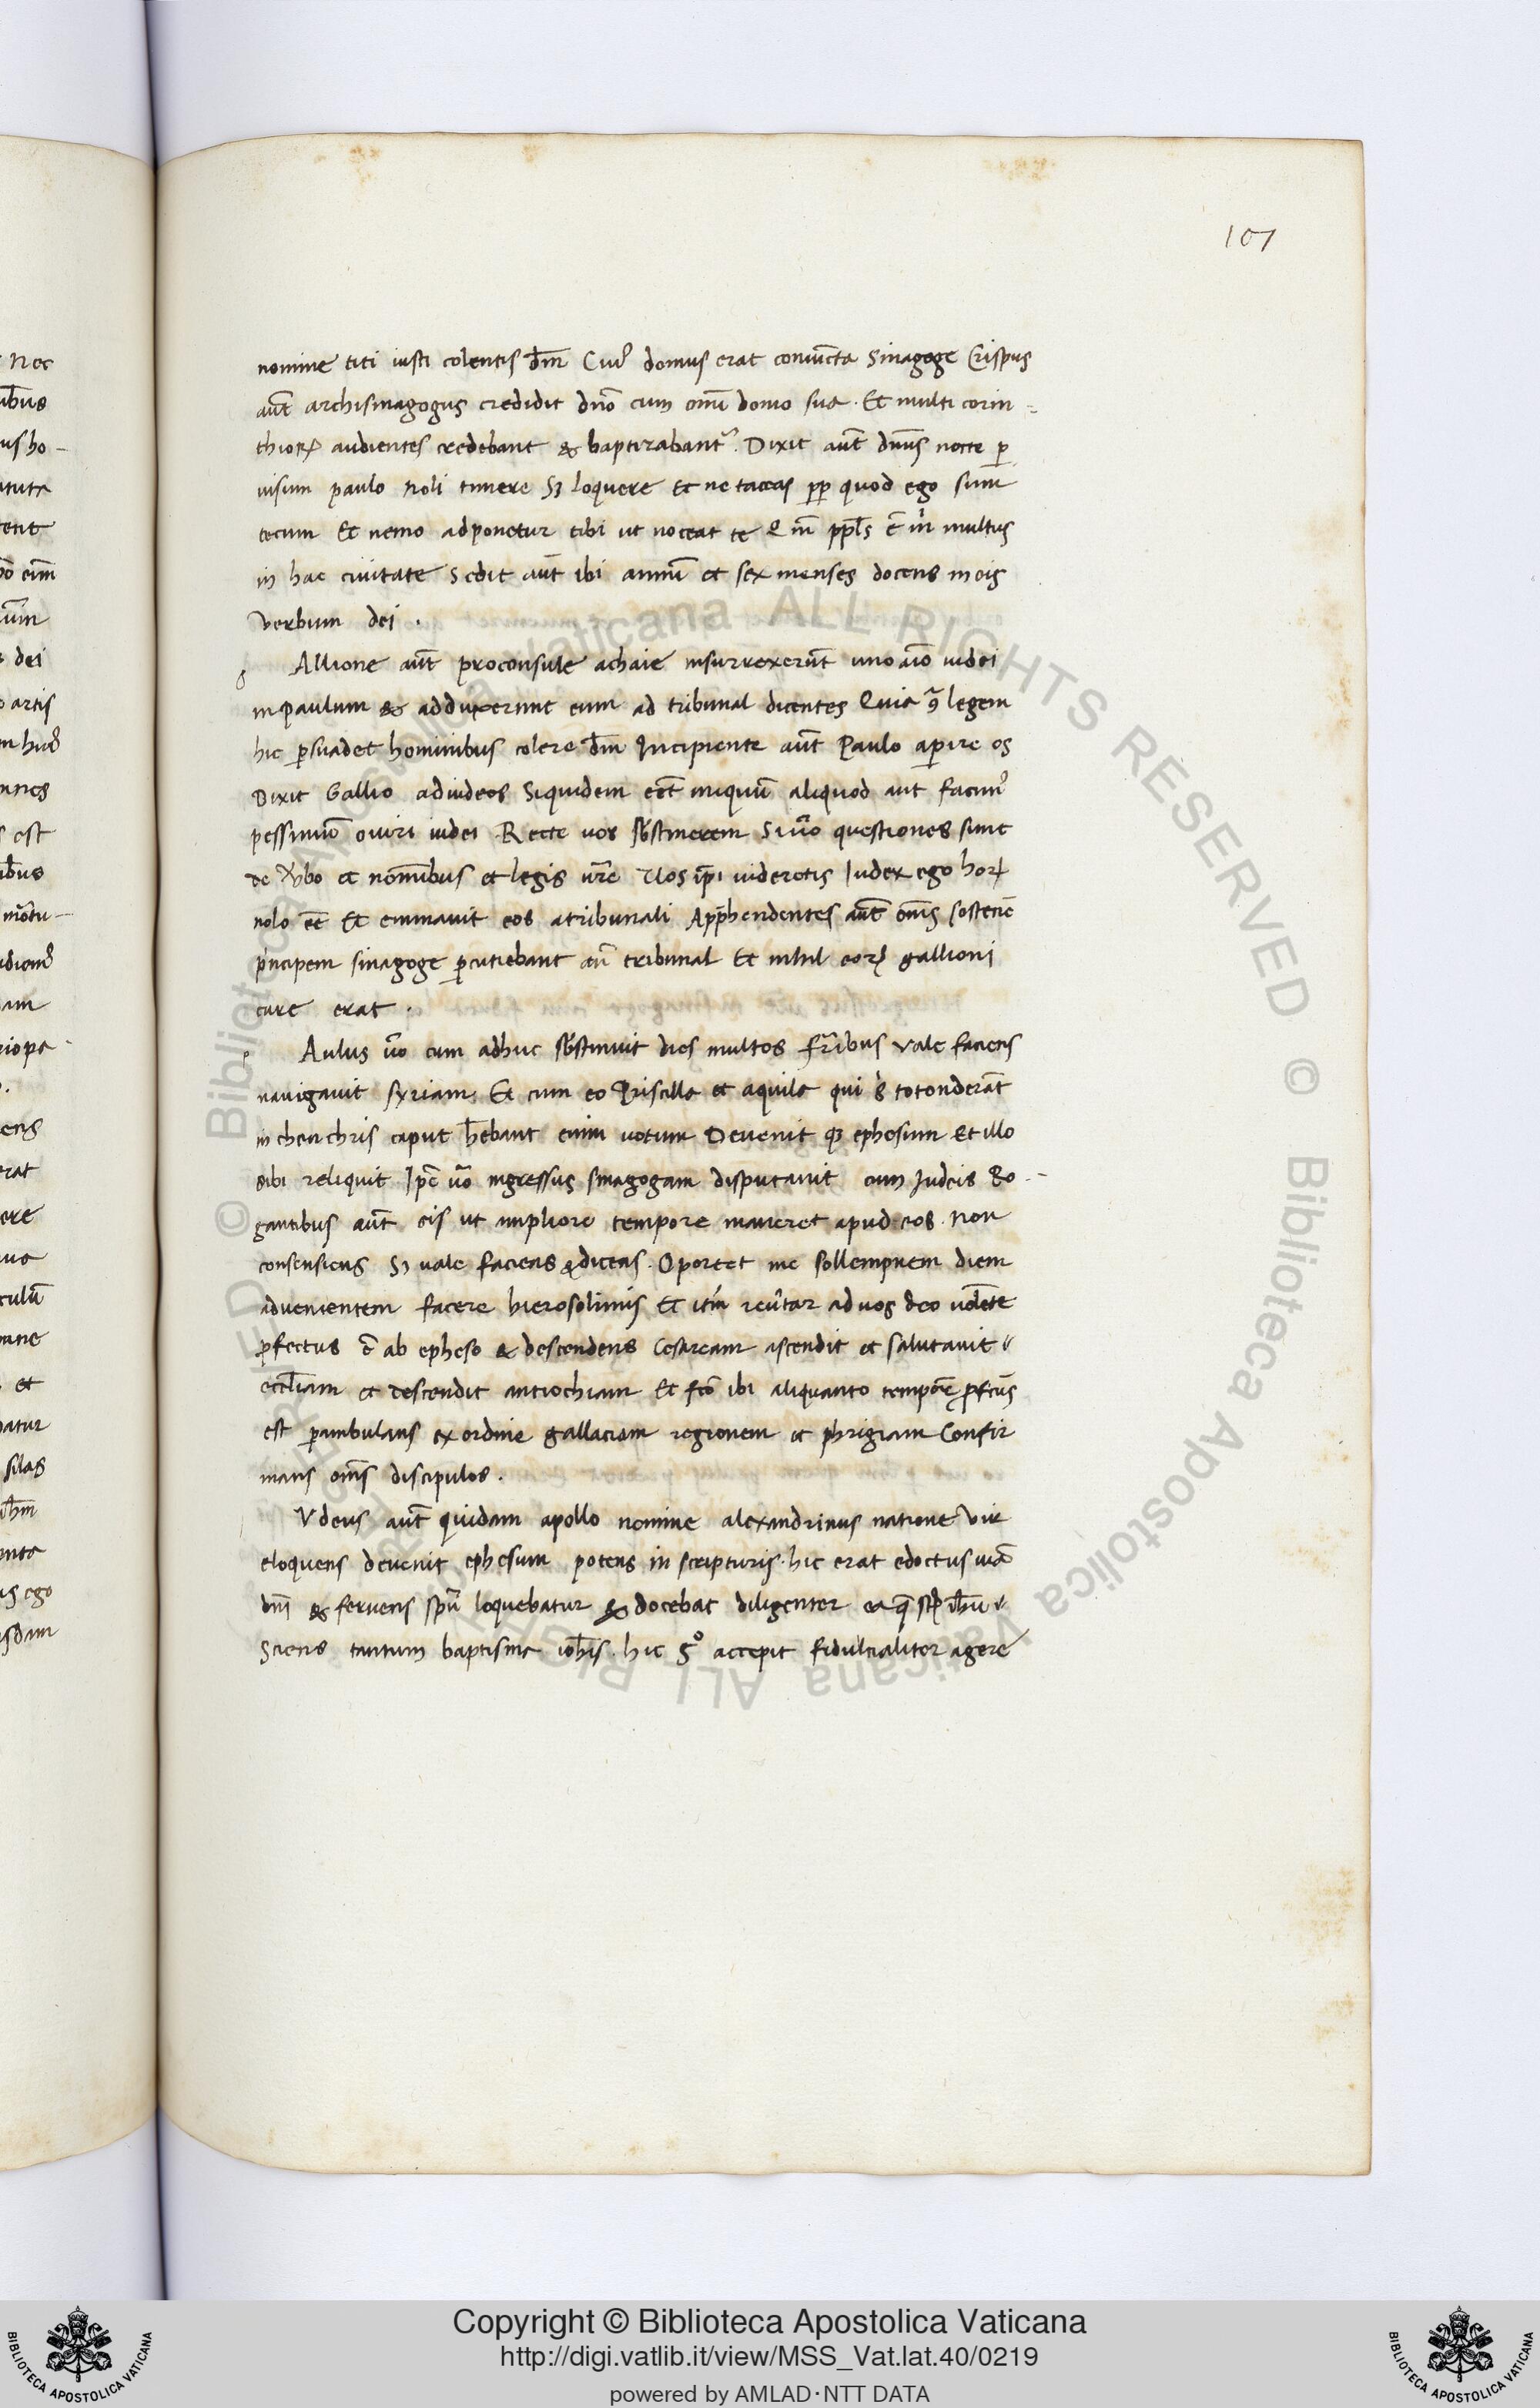 107
nomine titi iusti colentis dm̄ Cui9 domus erat coniuncta Sinagoge Crispus
aūt archisinagogus credidit dn̄o cum om̄i domo sua. Et multi corin-
thioꝝ audientes credebant & baptizabantᷣ. Dixit aūt dn̄us nocte ꝑ
uisum paulo Noli timere Sꝫ loquere Et ne taceas ꝓp̄ quod ego sum
tecum Et nemo adponetur tibi ut noceat te Qm̄ ppl̄s ē in multus
in hac ciuitate Sedit aūt ibi annū et sex menses docens in eis
Verbum dei.
g Allione aūt proconsule achaie insurrexerūt uno aīo iudei
in paulum & adduxerunt eum ad tribunal dicentes Quia ꝯ legem
hic ꝑsuadet hominibus colere dm̄ Incipiente aūt Paulo aꝑire os
Dixit Gallio ad iudeos Siquidem eēt iniquū aliquod aut facin9
pessimū o uiri iudei Recte uos sb̄stinerem Si ūo questiones sunt
de v̄bo et nom̄ibus et legis ur̄e Uos ip̄i uideretis Iudex ego hoꝝ
nolo eē Et eminauit eos a tribunali Appr̄hendentes aūt om̄s sostenē
pͥncipem sinagoge ꝑcutiebant an̄ tribunal Et nihil eoꝝ gallioni
cure erat.
p Aulus ūo cum adhuc sb̄stinuit dies multos fr̄ibus Vale faciens
nauigauit syriam Et cum eo Priscilla et aquila qui sͥ totonderāt
in chenchris caput hēbant enim uotum Deuenit qꝫ ephesum Et illo
sibi reliquit Ipē ūo ingressus sinagogam disputauit cum Iudeis Ro-
gantibus aūt eis ut ampliore tempore maneret apud eos. Non
consensiens Sꝫ uale faciens & dicens. Oportet me sollempnem diem
aduenientem facere hierosolimis Et itm̄ reūtar ad uos deo uolēte
ꝓfectus ē ab epheso & descendens Cesaream ascendit et salutauit
eccl̄iam et descendit antiochiam Et fc̄o ibi aliquanto tempore ꝓfcūs
est ꝑambulans ex ordine gallaciam regionem et phrigiam Confir
mans om̄s discipulos.
i Udeus aūt quidam apollo nomine alexandrinus natione Vir
eloquens deuenit ephesum potens in scripturis. hic erat edoctus uiā
dn̄i & feruens spū loquebatur & docebat diligenter ea que st̄ ih̄u
Sciens tantum baptisma ioh̄is. hic gͦ accepit fidultialiter agere
Copyright © Biblioteca Apostolica Vaticana
http://digi.vatlib.it/view/MSS_Vat.lat.40/0219
powered by AMLAD·NTT DATA